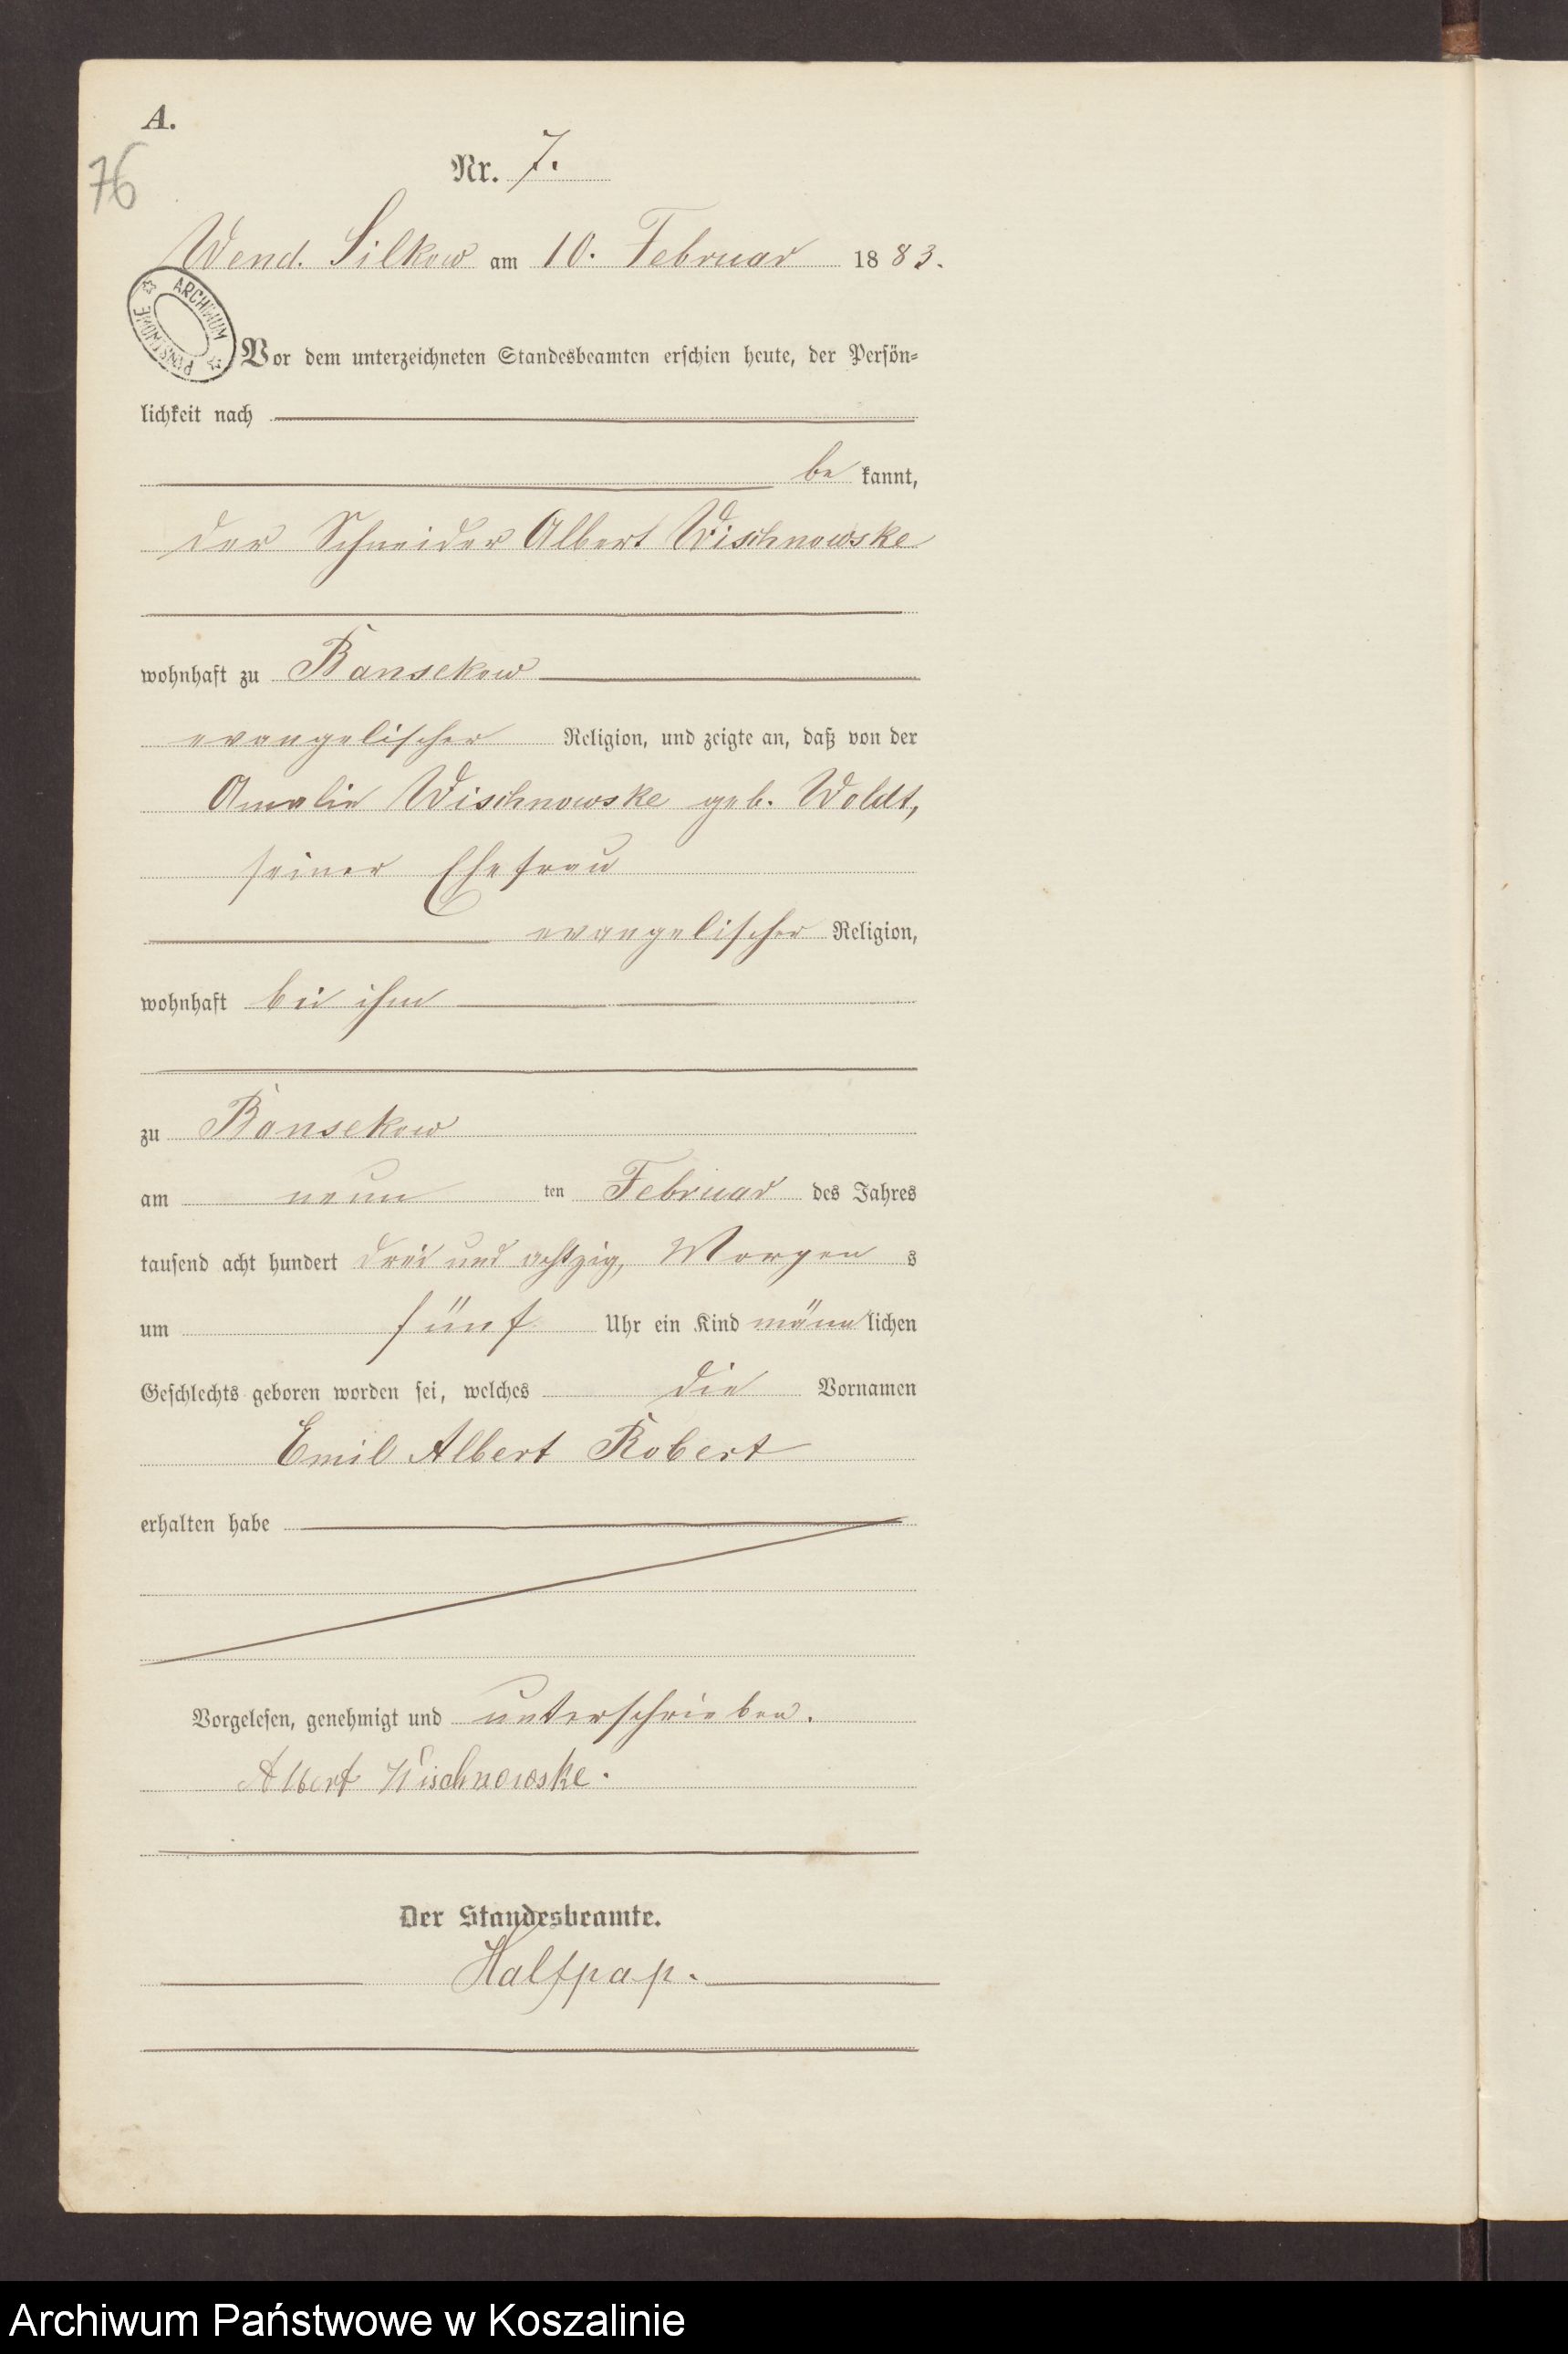 A.
76
Nr. 7.
Wend. Silkow am 10. Februar 1883.
ARCHIWUM PAŃSTWOWE
Vor dem unterzeichneten Standesbeamten erschien heute, der Persön-
lichkeit nach
be kannt,
der Schneider Albert Wischnowske
wohnhaft zu Bansekow
evangelischer Religion, und zeigte an, daß von der
Amalie Wischnowske geb. Woldt,
seiner Ehefrau
evangelischer Religion,
wohnhaft bei ihm
zu Bansekow
am neun ten Februar des Jahres
tausend acht hundert drei und achtzig, Morgen s
um fünf Uhr ein Kind männlichen
Geschlechts geboren worden sei, welches die Vornamen
Emil Albert Robert
erhalten habe
Vorgelesen, genehmigt und unterschrieben.
Albert Wischnowske.
Der Standesbeamte.
Halfpap.
Archiwum Państwowe w Koszalinie